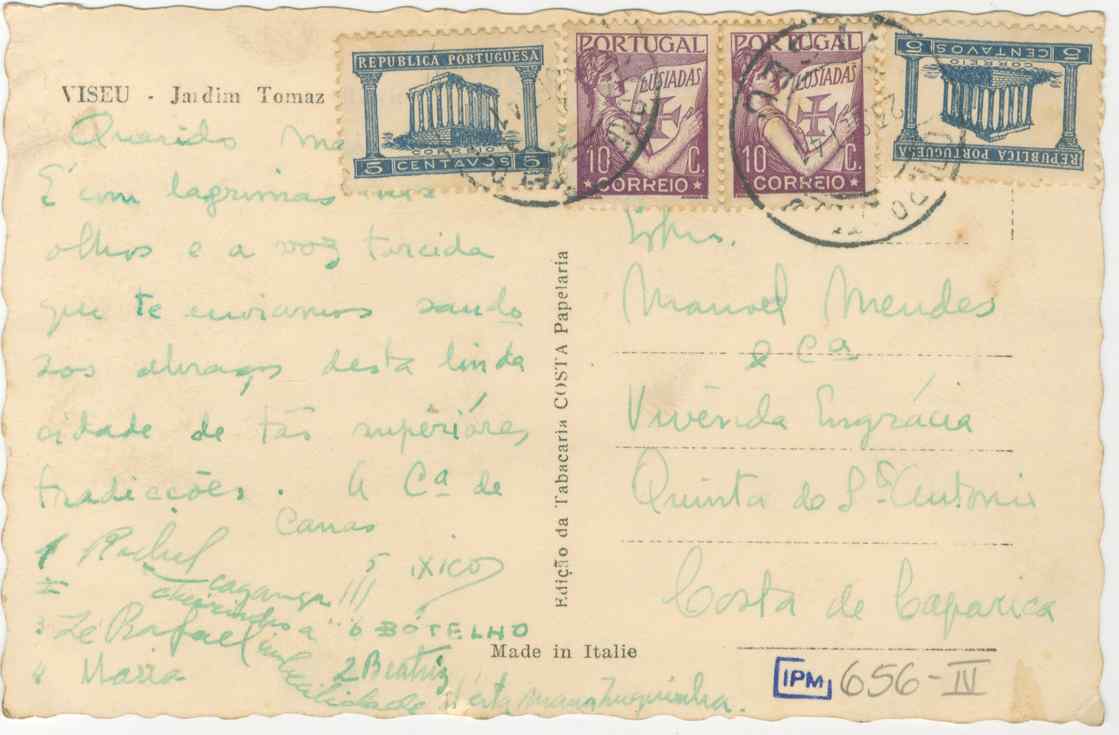 VISEU - Jardim Tomaz
Querido
É com lagrimas nos
olhos e a voz torcida
que te enviamos saudo
zos abraços desta linda
cidade de tão supérióres
tradicções. A Cª de
Canas
Rachel
5 XICO
3 Zé Rafael
6 BÓTELHO
4 Maria
2 Beatriz
REPUBLICA PORTUGUESA
CORREIO
5 CENTAVOS 5
PORTUGAL
LUSIADAS
10 C.
CORREIO
PORTUGAL
LUSIADAS
10 C.
CORREIO
5 CENTAVOS 5
CORREIO
REPUBLICA PORTUGUESA
Edição da Tabacaria COSTA Papelaria
Made in Italie
Manuel Mendes
e Cª
Vivenda Engrácia
Quinta de Stº Antonio
Costa de Caparica
IPM 656-IV